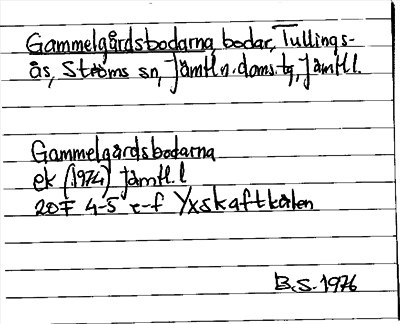 Gammelgårdsbodarna, bodar, Tullings-
ås, Ströms sn, Jämtl n. doms. tg, Jämtl l.
Gammelgårdsbodarna
ek (1974) Jämtl. l
20F 4-5 e-f Yxskaftkälen
B.S. 1976